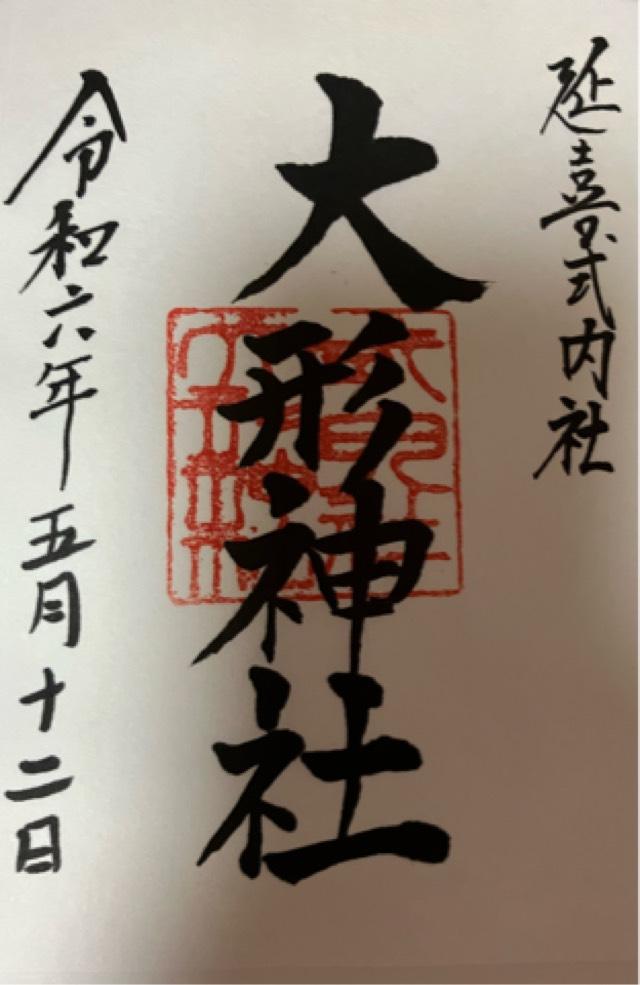 延喜式内社
大形神社
令和六年五月十二日